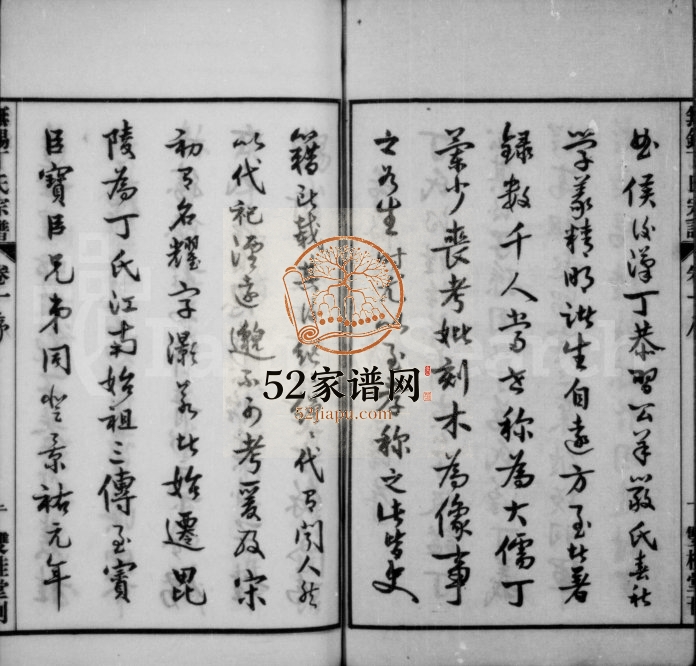 無錫丁氏宗譜
雙桂堂刊
始侯後漢丁恭習公羊嚴氏春秋
學義精明諸生自遠方至者著
錄數千人當世稱為大儒丁
蘭少喪考妣刻木為像事
之如生 以孝 稱之此皆史
籍所載其後 代有聞人然
以代祀湮遠邈不可考爰及宋
初有名耀字灝者始遷毘
陵為丁氏江南始祖三傳至賓
臣寶臣兄弟同登景祐元年
無錫丁氏宗譜
卷一序
雙桂堂刊
52家谱网
52jiapu.com